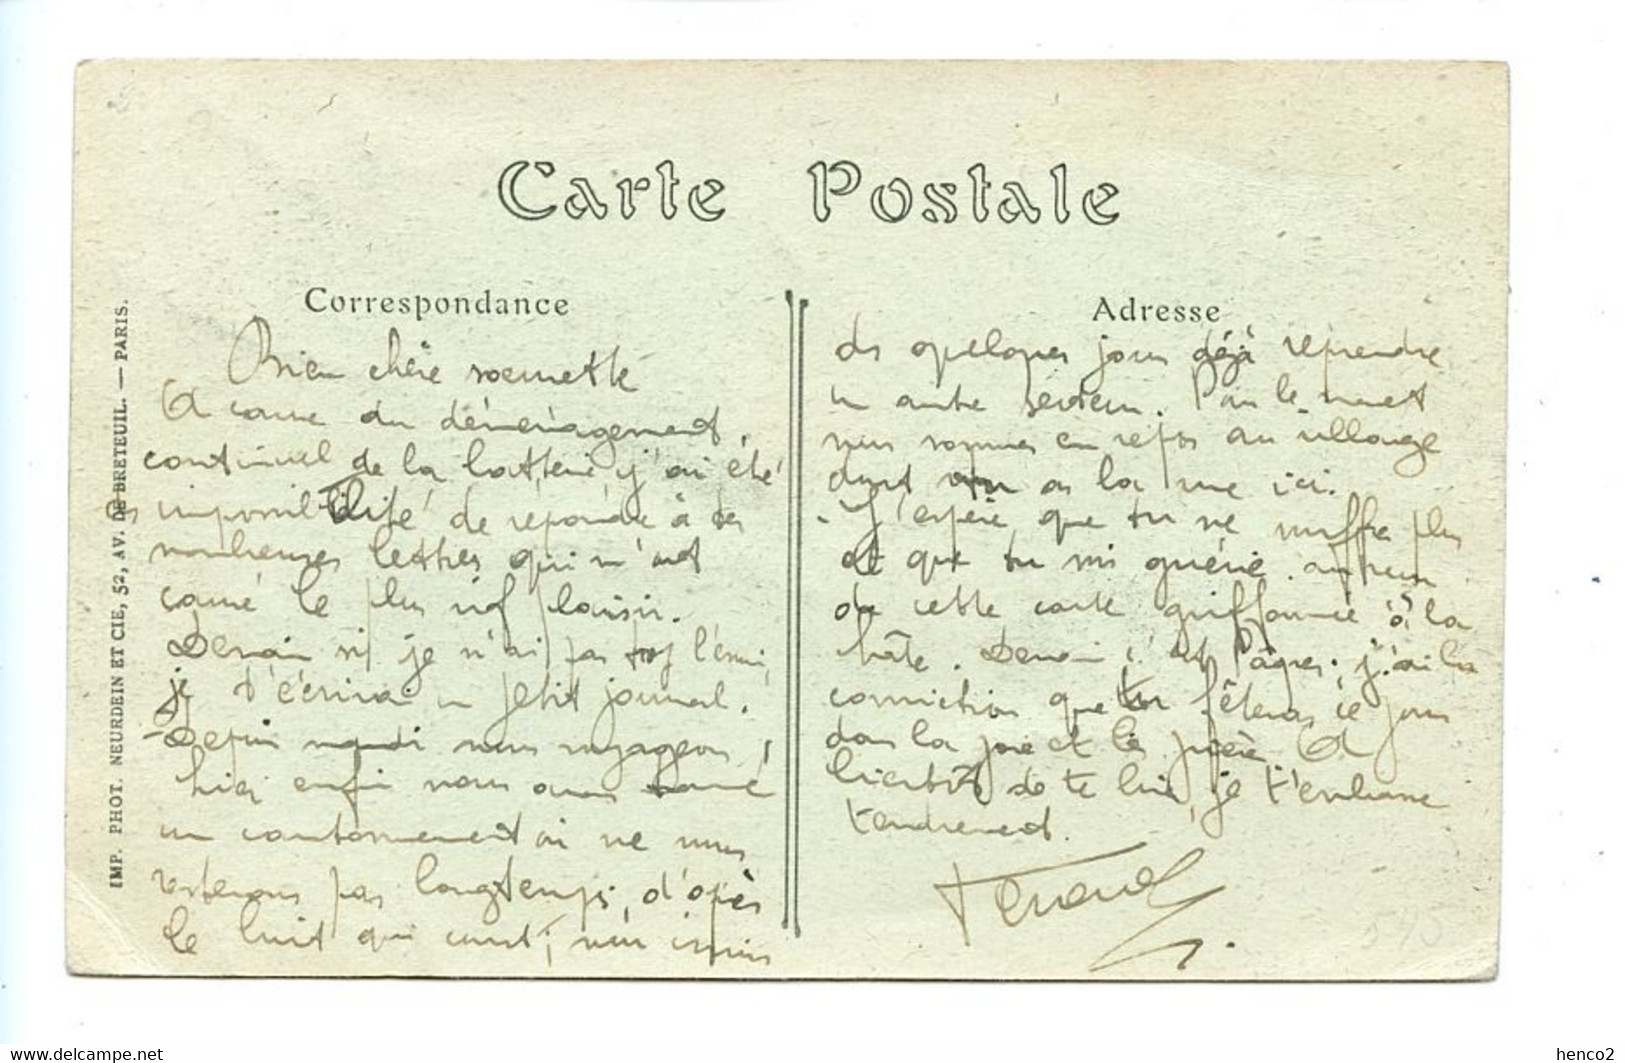 Carte Postale
Correspondance
Bien chère soeurette
A cause du déménagement
continuel de la batterie, j'ai été
impossibilité de répondre à tes
nombreuses lettres qui m'ont
causé le plus vif plaisir.
Demain si je n'ai pas trop l'ennui,
je t'écrirai un petit journal.
Depuis mardi nous voyageons,
hier enfin nous avons
un cantonnement où ne nous
resterons pas longtemps, d'après
le bruit qui court, nous irions
Adresse
ds quelques jours déjà reprendre
un autre secteur. Pour le moment
nous sommes en repos au village
dont on a la vue ici.
J'espère que tu ne souffre plus
et que tu guérie
de cette carte griffonnée à la
hâte. Demain c'est Pâques, j'ai la
conviction que tu fêteras ce jour
dans la joie et la prière. A
bientôt de te lire, je t'embrasse
tendrement.
Fernand
IMP. PHOT. NEURDEIN ET CIE, 52, AV. DE BRETEUIL. — PARIS.
www.delcampe.net
henco2